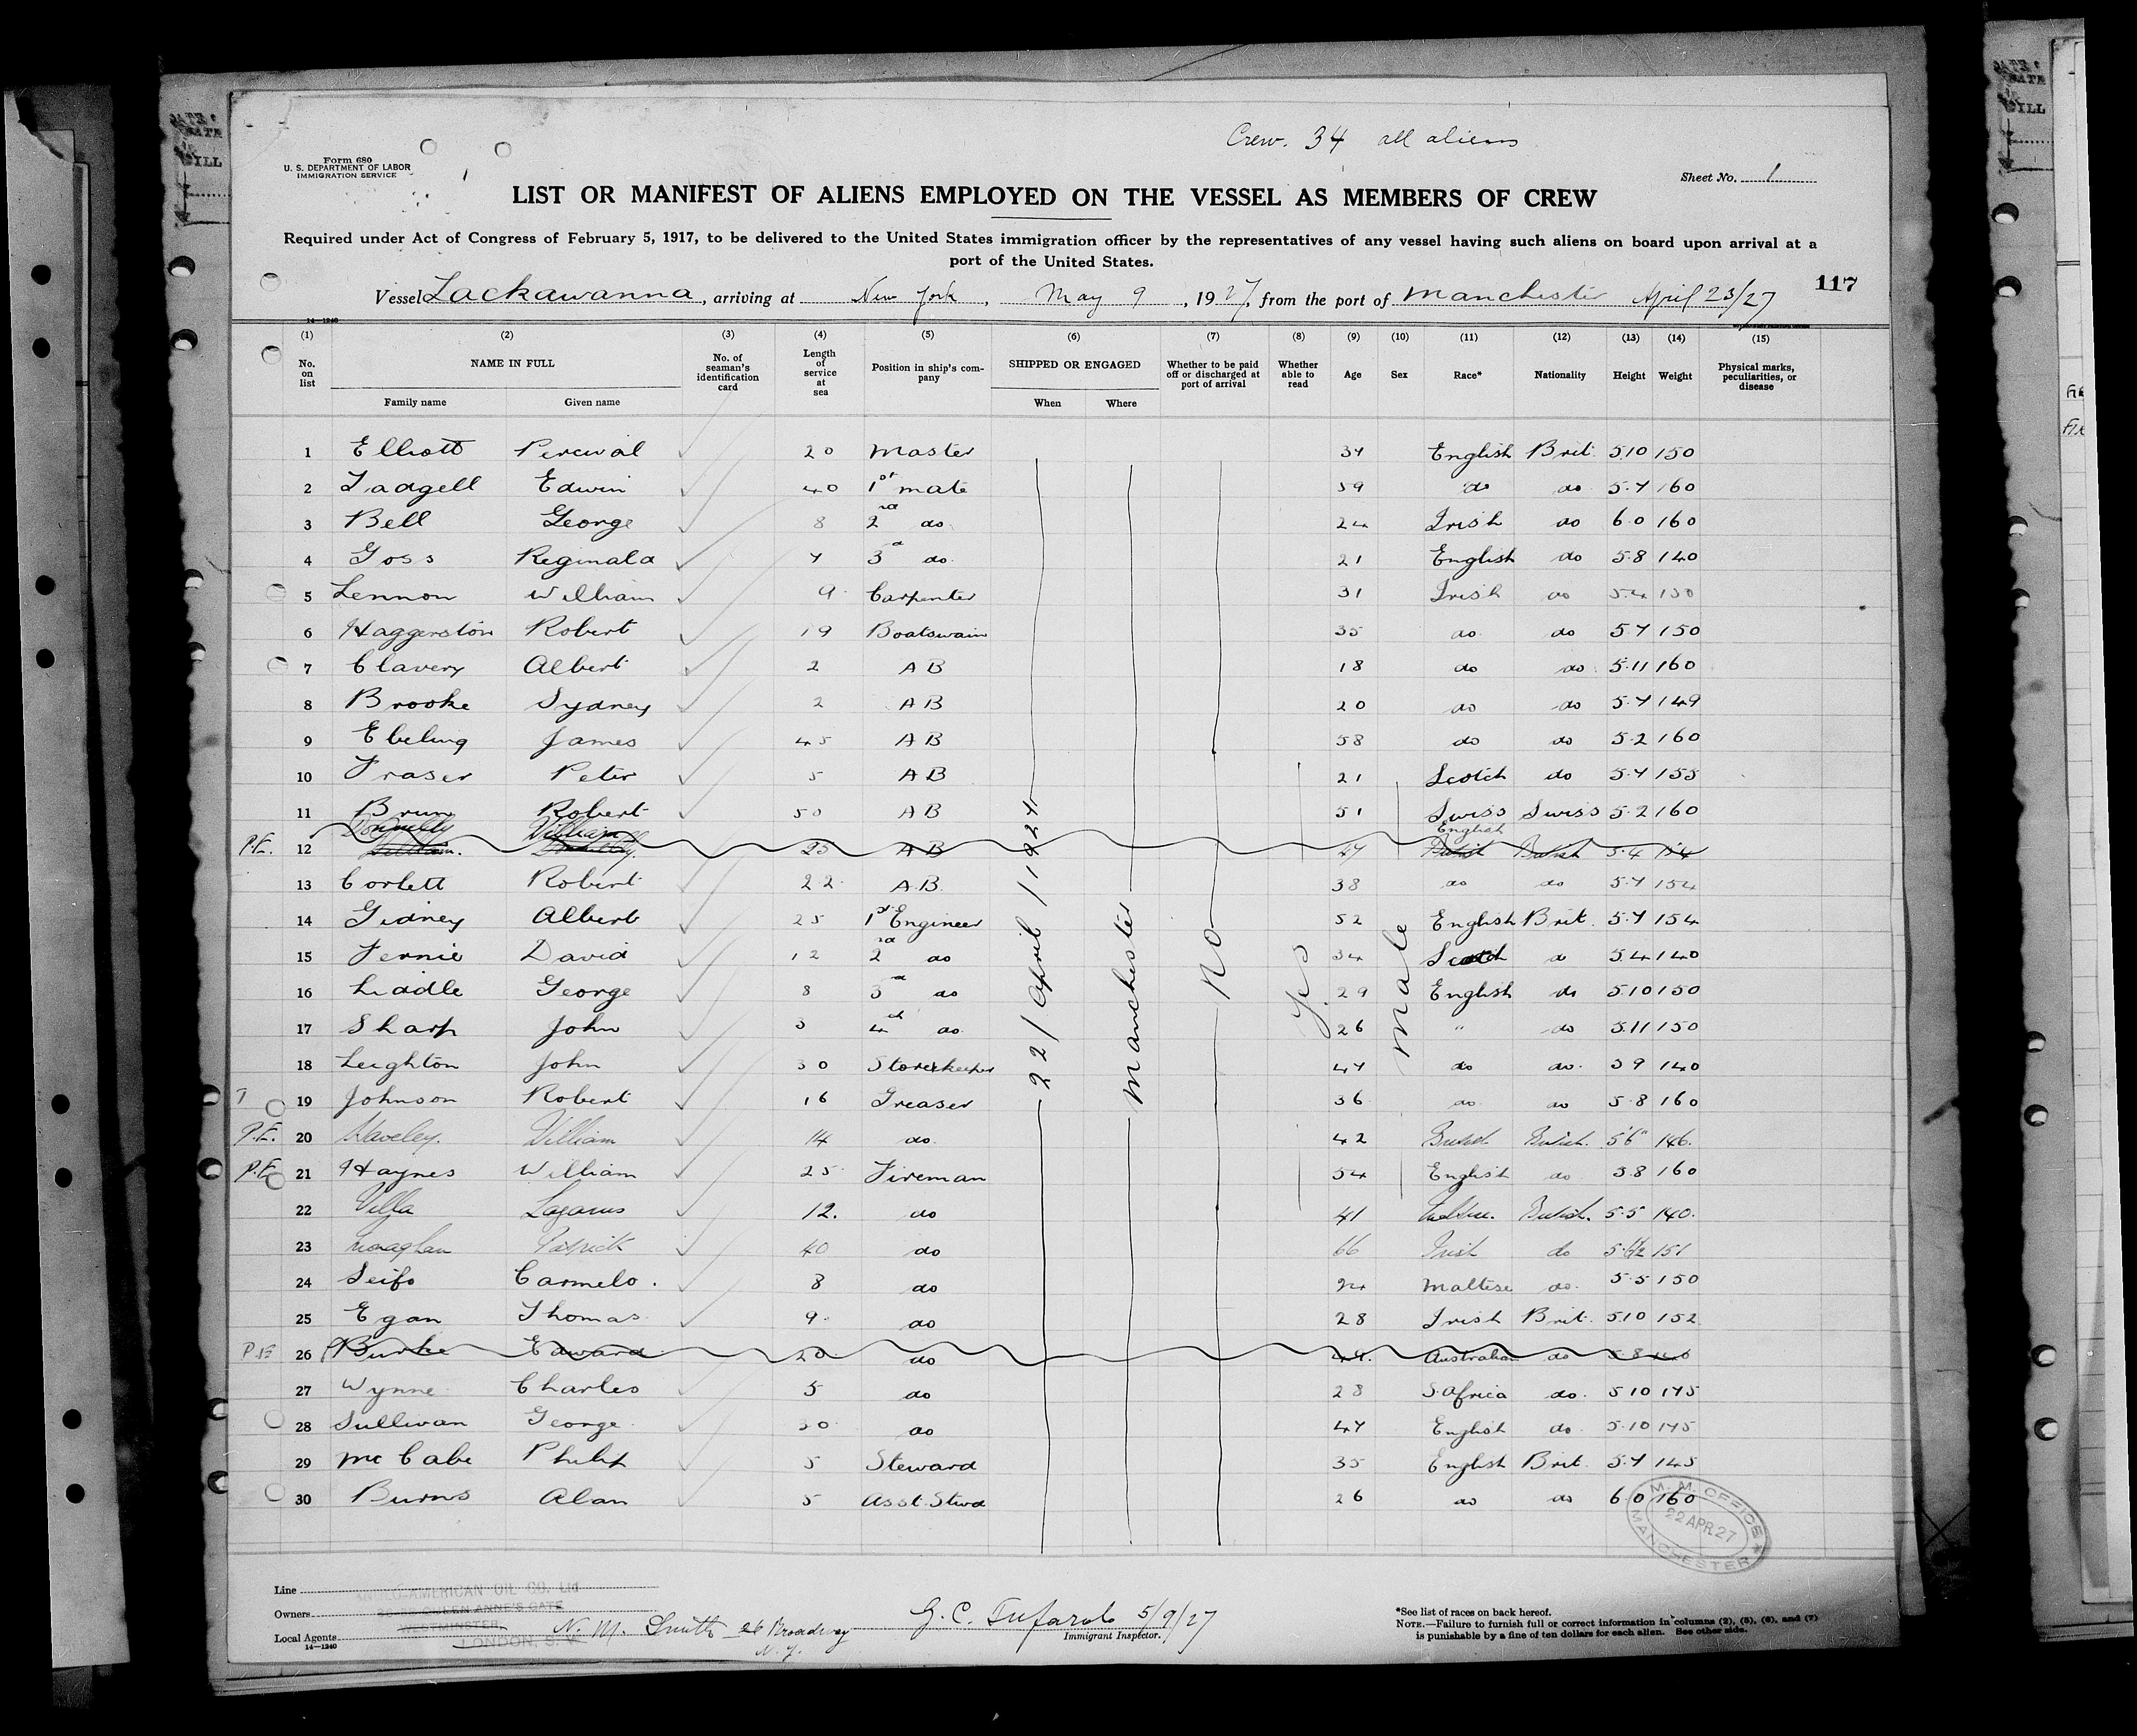 Crew. 34 all aliens
Form 680
U. S. DEPARTMENT OF LABOR
IMMIGRATION SERVICE
Sheet No. 1
LIST OR MANIFEST OF ALIENS EMPLOYED ON THE VESSEL AS MEMBERS OF CREW
Required under Act of Congress of February 5, 1917, to be delivered to the United States immigration officer by the representatives of any vessel having such aliens on board upon arrival at a
port of the United States.
Vessel Lackawanna, arriving at New York, May 9, 1927, from the port of Manchester April 23/27
117
14—1240
(1) (2) (3) (4) (5) (6) (7) (8) (9) (10) (11) (12) (13) (14) (15)
No. on list NAME IN FULL No. of seaman's identification card Length of service at sea Position in ship's company SHIPPED OR ENGAGED Whether to be paid off or discharged at port of arrival Whether able to read Age Sex Race* Nationality Height Weight Physical marks, peculiarities, or disease
Family name Given name When Where
1 Elliott Percival 20 Master 34 English Brit 5.10 150
2 Tadgell Edwin 40 1st mate 59 do do 5.7 160
3 Bell George 8 2nd do 24 Irish do 6.0 160
4 Goss Reginald 7 3rd do 21 English do 5.8 140
5 Lennon William 9 Carpenter 31 Irish do 5.4 150
6 Haggerston Robert 19 Boatswain 35 do do 5.7 150
7 Clavery Albert 2 AB 18 do do 5.11 160
8 Brooke Sydney 2 AB 20 do do 5.7 149
9 Ebeling James 45 AB 58 do do 5.2 160
10 Fraser Peter 5 AB 21 Scotch do 5.7 155
11 Brun Robert 50 AB 51 Swiss Swiss 5.2 160
P.E. 12 Donnelly William 25 AB 47 English British 5.4 154
13 Corlett Robert 22 A.B. 38 do do 5.7 154
14 Gidney Albert 25 1st Engineer 52 English Brit. 5.7 154
15 Fernie David 12 2nd do 34 Scotch do 5.4 140
16 Liddle George 8 3rd do 29 English do 5.10 150
17 Sharp John 3 4th do 26 " do 5.11 150
18 Leighton John 30 Storekeeper 47 do do 5 9 140
19 Johnson Robert 16 Greaser 36 do do 5.8 160
P.E. 20 Waveley. William 14 do 42 British British. 5'6" 146.
P.E. 21 Haynes William 25 Fireman 54 English do 5.8 160
22 Villa Lazarus 12. do 41 British. 5.5 140.
23 Monaghan Patrick 40 do 66 Irish do 5.6½ 151
24 Seifo Carmelo. 8 do 24 Maltese do 5.5 150
25 Egan Thomas 9 do 28 Irish Brit. 5.10 152
P.E. 26 Burke Edward 20 do 49. Australian do 5.8
27 Wynne Charles 5 do 28 S.Africa do. 5 10 175
28 Sullivan George 30 do 47 English do 5.10 175
29 McCabe Philip 5 Steward 35 English Brit. 5.7 145
30 Burns Alan 5 Asst. Stwd 26 do do 6.0 160
22/April/1927
Manchester
No
Yes
Male
M. M. OFFICE
22 APR 27
MANCHESTER
Line ANGLO-AMERICAN OIL CO. Ltd
Owners QUEEN ANNE'S GATE
WESTMINSTER,
Local Agents LONDON, S. W. N. M. Smith 26 Broadway
N. Y.
14—1240
G. C. Tufarolo 5/9/27
Immigrant Inspector.
*See list of races on back hereof.
NOTE.—Failure to furnish full or correct information in columns (2), (5), (6), and (7)
is punishable by a fine of ten dollars for each alien. See other side.